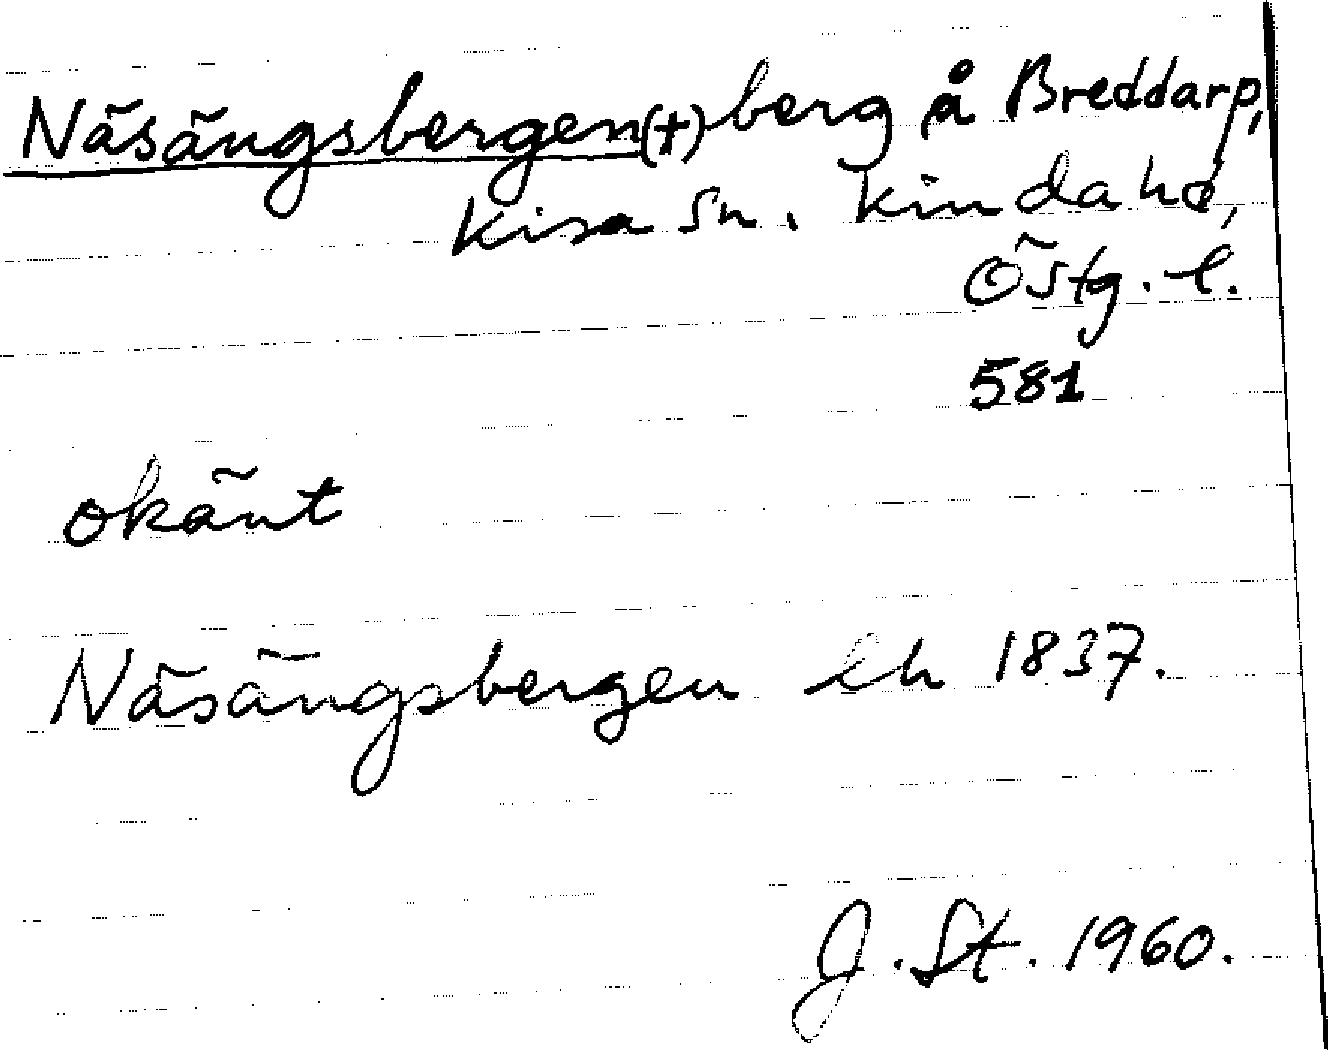 Näsängsbergen(+) berg å Breddarp,
Kisa sn. Kinda hd,
Östg. l.
581
okänt
Näsängsbergen lh 1837.
J. St. 1960.